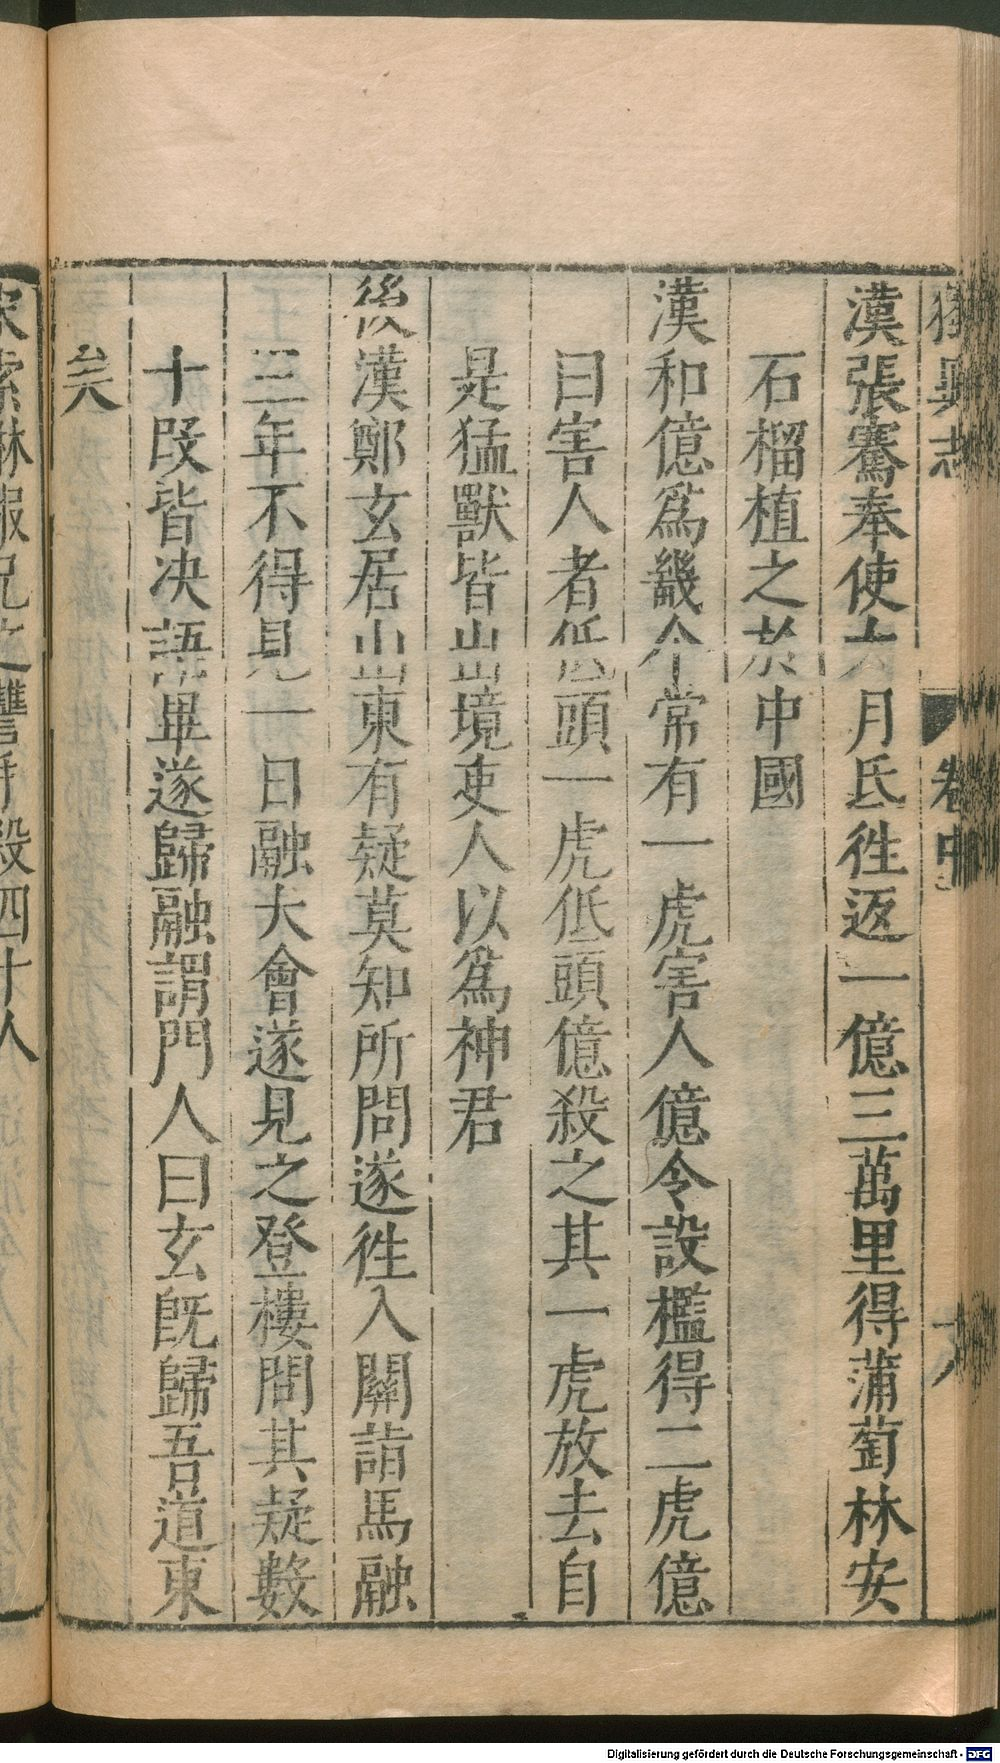 獨異志 卷中 十八
漢張騫奉使大月氏徃返一億三萬里得蒲萄林安
石榴植之於中國
漢和億爲畿令常有一虎害人億令設檻得二虎億
曰害人者低頭一虎低頭億殺之其一虎放去自
是猛獸皆出境吏人以爲神君
後漢鄭玄居山東有疑莫知所問遂徃入關詣馬融
三年不得見一日融大會遂見之登樓問其疑數
十段皆决語畢遂歸融謂門人曰玄旣歸吾道東
矣
之讐手殺四十人
Digitalisierung gefördert durch die Deutsche Forschungsgemeinschaft - DFG